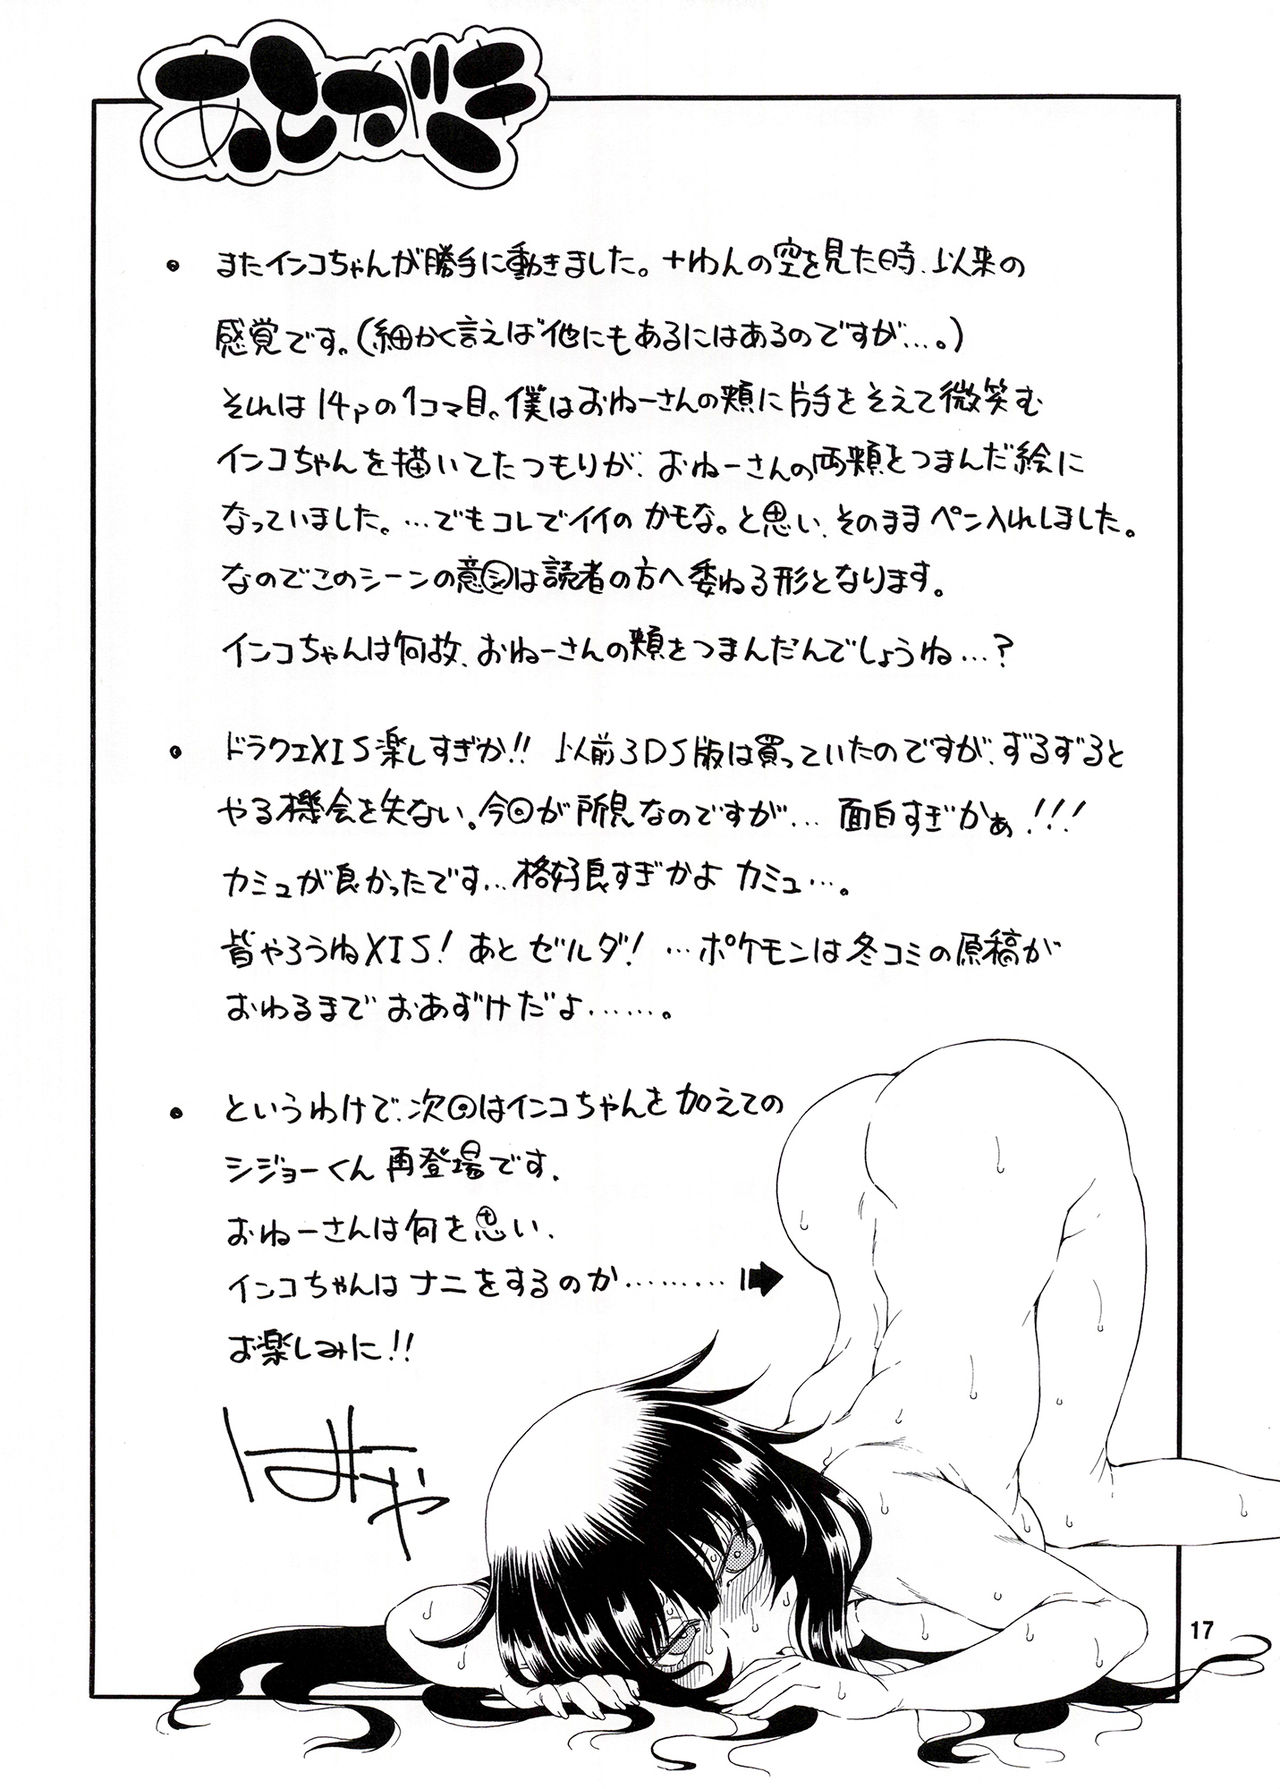 あとがき
・またインコちゃんが勝手に動きました。十わんの空を見た時、以来の
感覚です。(細かく言えば他にもあるにはあるのですが…。)
それは14pの1コマ目。僕はおねーさんの頬に片手をそえて微笑む
インコちゃんを描いてたつもりが、おねーさんの両頬をつまんだ絵に
なっていました。…でもコレでイイのかもな。と思い、そのままペン入れしました。
なのでこのシーンの意図は読者の方へ委ねる形となります。
インコちゃんは何故、おねーさんの頬をつまんだんでしょうね…?
・ドラクエXIS楽しすぎか!! 以前3DS版は買っていたのですが、ずるずると
やる機会を失ない。今回が所見なのですが… 面白すぎかぁ!!!
カミュが良かったです…格好良すぎかよ カミュ…。
皆やろうねXIS! あと ゼルダ! …ポケモンは冬コミの原稿が
おわるまで おあずけだよ……。
・というわけで、次回はインコちゃんを加えての
シジョーくん 再登場です。
おねーさんは何を思い、
インコちゃんは ナニをするのか………
お楽しみに!!
はみゃ
17